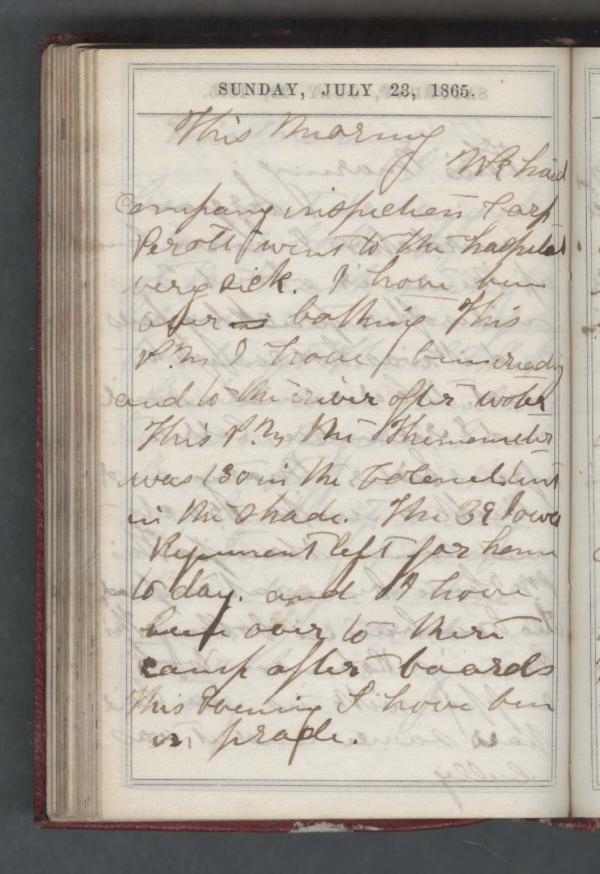 SUNDAY, JULY 23, 1865.
This Morning
We had
Company inspection Corp
Perott went to the hospital
very sick. I have ben
over bathing This
P.M I have ben
and to the river after water
This P M the Thermometer
was 130 in the Colonel tent
in the shade. The 39 Iowa
Regument left for home
to day. and I have
been over to there
camp after boards
This Evening I have ben
on prade.